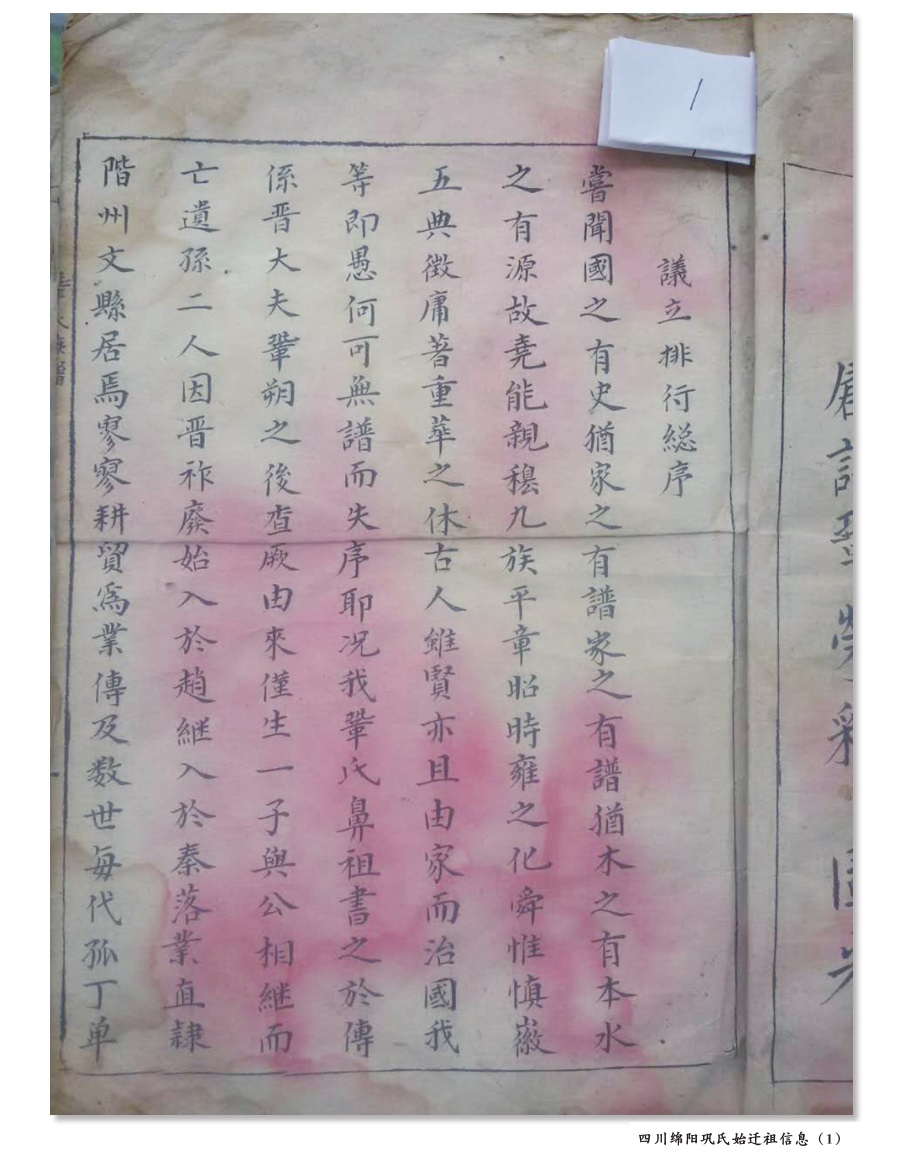 1
議立排行総序
嘗聞國之有史猶家之有譜家之有譜猶木之有本水
之有源故堯能親穆九族平章昭時雍之化舜惟慎徽
五典徵庸著重華之休古人雖賢亦且由家而治國我
等即愚何可無譜而失序耶况我鞏氏鼻祖書之於傳
係晋大夫鞏朔之後查厥由來僅生一子與公相繼而
亡遺孫二人因晋祚廢始入於趙継入於秦落業直隸
階州文縣居焉寥寥耕貿爲業傳及数世每代孤丁单
四川绵阳巩氏始迁祖信息（1）